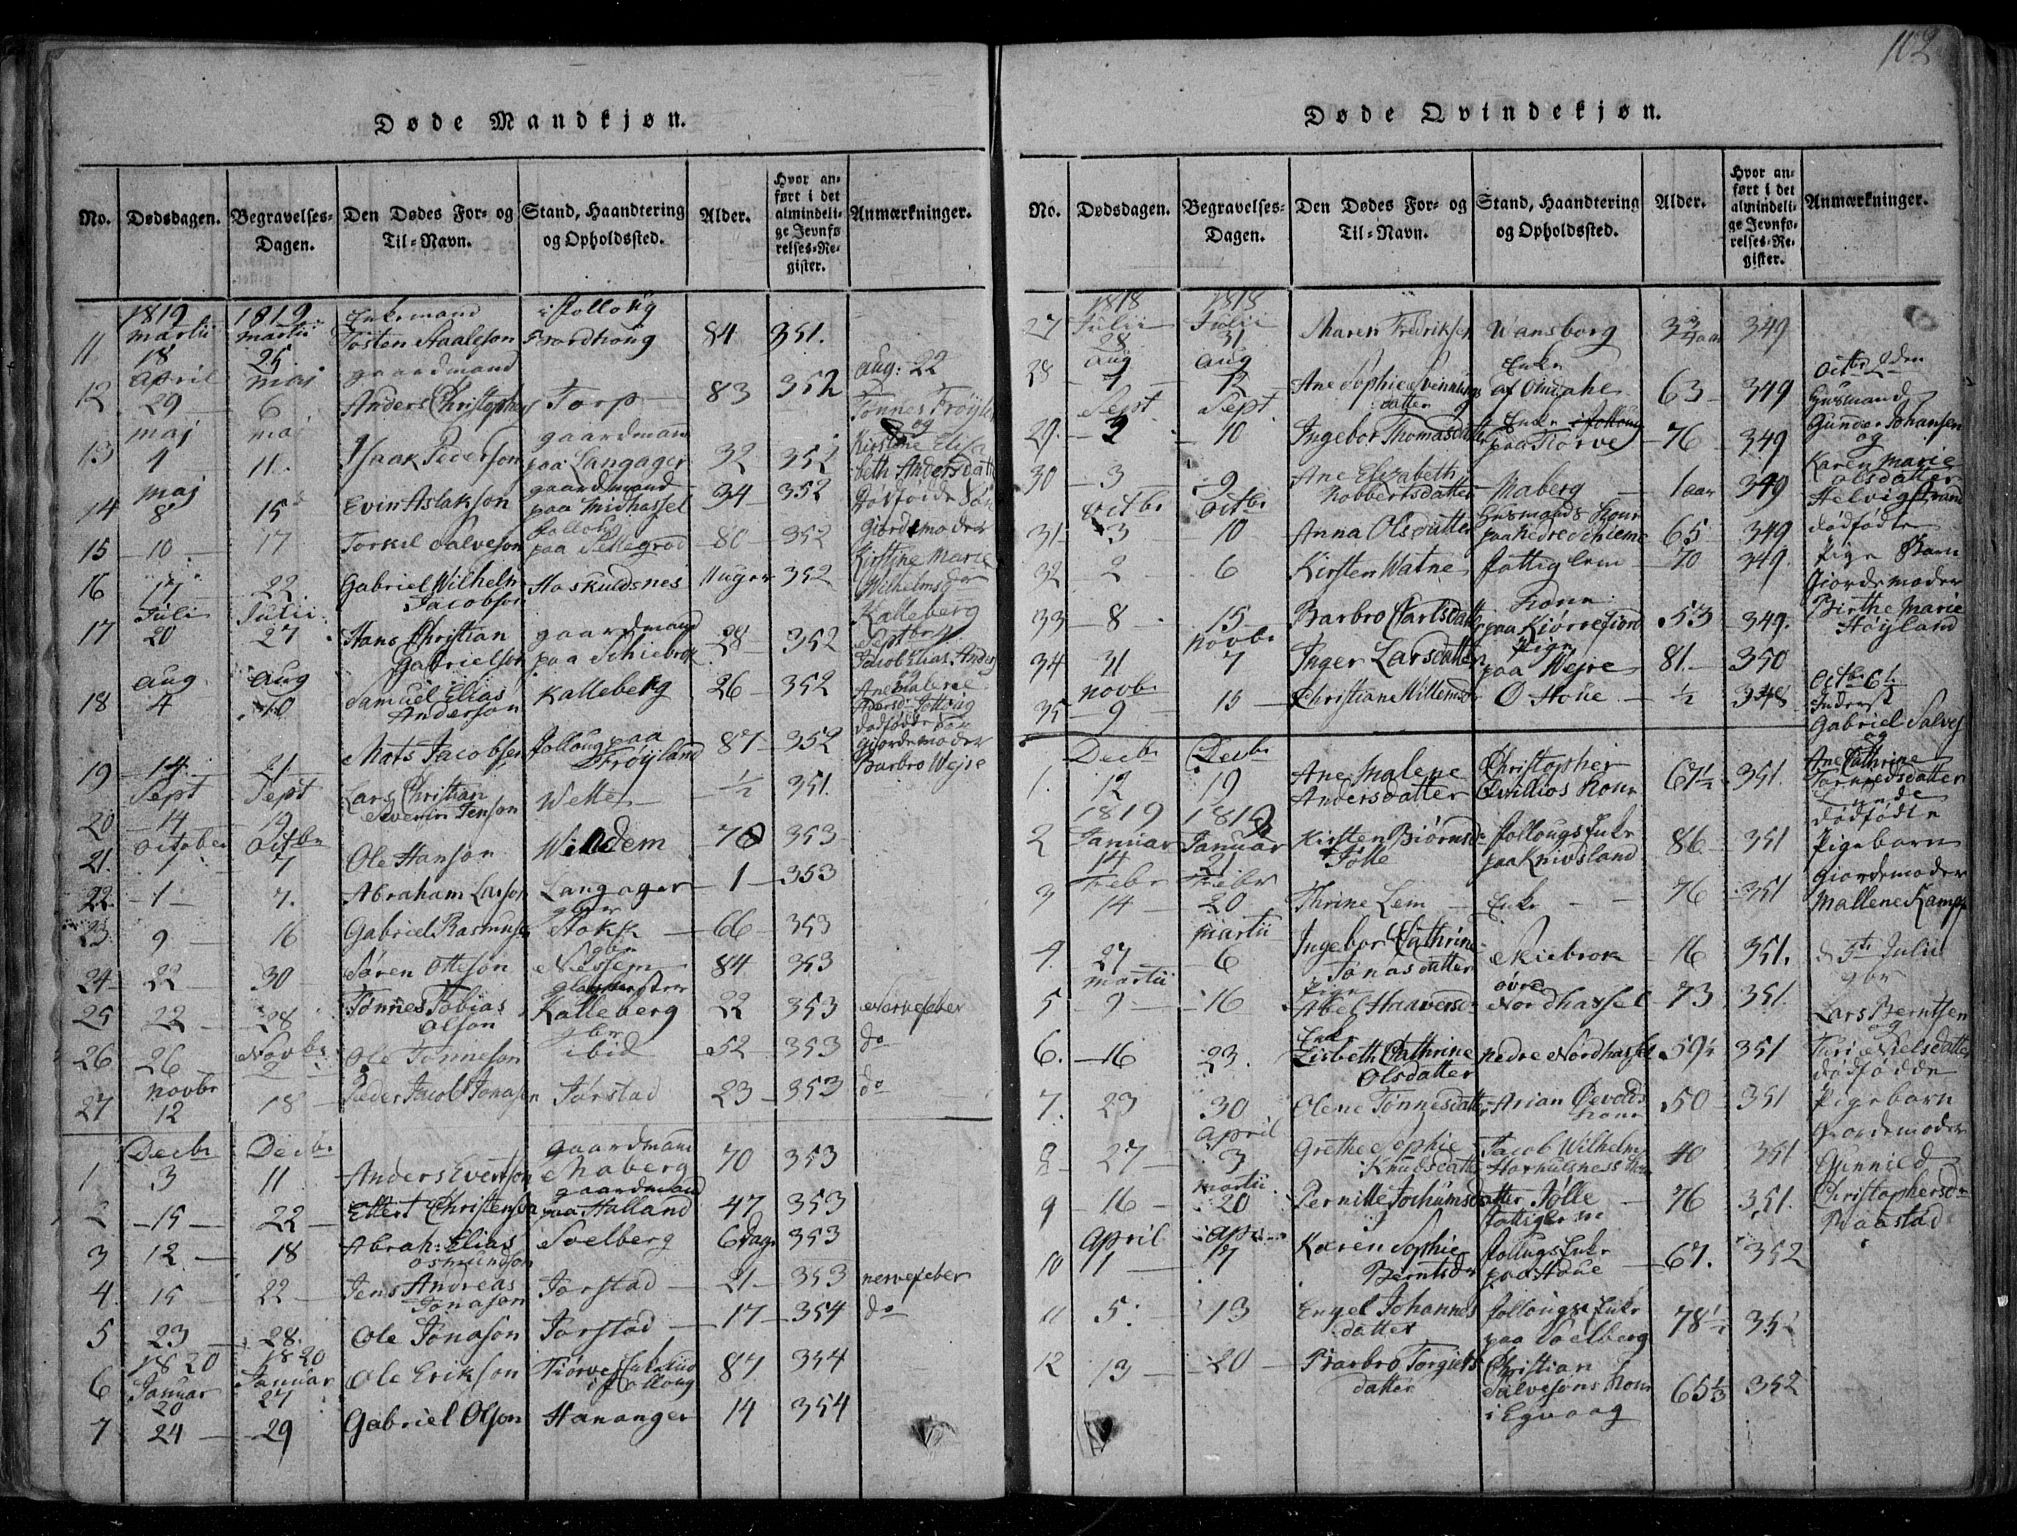 112
Døde Mandkjøn.
No. Dødsdagen. Begravelses-Dagen. Den Dødes For- og Til-Navn. Stand, Haandtering og Opholdssted. Alder. Hvor anført i det almindelige Jevnførelses-Register. Anmærkninger.
1819 1819 Enkemand i folloug
11 Martii 18 Martii 25 Tosten Staaleson 84 351.
gaardmand
12 April 29 Maj 6 Anders Christophers Torp 83 352
13 Maj 4 Maj 11. Isaak Pederson gaardmand paa Langager 32 352
14 Maj 8 15 Evin Aslakson gaardmand paa Midhassel 34 352
15 10 17 Torkil Salveson follong paa 80 352
16 17 22 Gabriel Wilhelm Jacobson Haskuldsnes 352
17 Julii 20 Julii 27 Hans Christian Gabrielson gaardmand paa Schiebrok 28 352
18 Aug 4 Aug 10 Samuel Elias Anderson Kalleberg 26 352
19 14 21 Mats Jacobsen follough paa Frøyland 87 352
20 Sept 14 Sept 19 Lars Christian Severin Jenson Wette ½ 351.
21. October 1 Octbr 7 Ole Hanson 78 353
22 1 7. Abraham Larson Langager 1 353
23 9 16 Gabriel Rasmusen gbr Stokk 66 353
24 22 30 Søren Otteson gbr Nessem 84 353
25 22 28 Tønnes Tobias Olson Kalleberg 22 353 Nervefeber
26 26 Novbr 2 Ole Tønneson gbr ibid 52 353 do
27 Novbr 12 18 Peder Jacob Jonason Jørstad 23 353 do
1 Decbr 3 Decbr 11 Anders Evertson gaardmand Maberg 70 353
2 15 22 Ellert Christenson gaardmand paa Halland 47 353
3 12 18 Abrah: Elias Osmundson Soelberg 6 Dage 353
4 15 22 Jens Andreas Jonason Jorstad 21 353 nervefeber
5 23 28. Ole Jonason Jorstad 17 354 do
1820 1820
6 Januar 20 Januar 27 Ole Erikson Tiørve i follong 87 354
7 24 29 Gabriel Olson Hananger 14 354
Aug: 22
Tønnes Frøyland
og
Kirstine Elisa
beth Andersdatter
Dødfødde Søn
Giordemoder
Kirstine Marie
Wilhelmsdr
Kalleberg
Septbr
Jacob Elias Anders
og
Ane Malene
dødfødde Søn
Giordemoder
Barbro Wejre
Døde Qvindekjøn.
No. Dødsdagen. Begravelses-Dagen. Den Dødes For- og Til-Navn. Stand, Haandtering og Opholdssted. Alder. Hvor anført i det almindelige Jevnførelses-Register. Anmærkninger.
1818 1818
27 Julii 28 Julii 31 Maren Fredriksen Wansborg 3¾ aar 349
28 Aug 7 Aug 12 Ane Sophie Svennungsdatter Enke af Omdahl 63 349
29. Sept 2 Sept 10 Ingebor Thomasdatter Enke i follong paa Tiørve 76 349
30 3 9 Ane Elizabeth Robbertsdatter Maberg 1 aar 349
31 Octbr 3 Octbr 10 Anna Olsdatter Husmands Kone paa Nedre Skieme 65 349
32 2 6 Kirsten Watne fattiglem 70 349
33 8 15 Barbro Carlsdatter Kone paa Kiørrefiord 53 349.
34 31 Novbr 7 Inger Larsdatter Pige paa Wejre 81. 350
35 Novbr 9 15 Christiane Willemsd O Houe ½ 348
1. Decbr 12 Decbr 19 Ane Malene Andersdatter Christopher Kone 67½ 351
1819 1819
2 Januar 14 Januar 21 Kirsten Biørnsd Jolle follougs Enke paa Knivsland 86 351
3 Febr 14 Febr 20 Thrine Lem Enke 76 351
4. 27 Martii 6 Ingebor Cathrine Jonasdatter Skiebrok 16 351.
5 Martii 9 16 Pige Abel Haaversd øvre Nordhassel 73 351.
6. 16 23 Enke Lisbeth Cathrine Olsdatter nedre Nordhassel 59½ 351
7. 23 30 Olene Tønnesdatter Arian Kone 50 351
8 27 April 3 Grethe Sophie Knudsdatter Jacob Wilhelm 40 351
9 16 Martii 20 Pernille Jochumsdatter Jølle fattiglem 76 351.
10 April 11 April 17 Karen Sophie Berntsdr follugs Enke paa Houe 67. 352
11 5. 13 Engel Johannes datter follougs Enke paa Soelberg 78½ 352
12 13 20 Barbro Torgiels datter Christian Salvesons Kone i Egvaag 65⅓ 352
Octbr 2den
Husmand
Gunder Johansen
og
Karen Marie
Olsdatter
Helvigstrand
dødfødte
Pige Barn
Giordemoder
Birthe Marie
Høyland
Octbr 6te
Inderst
Gabriel Salves
og
Ane Cathrine
dødfødte
Pigebarn
Giordemoder
Mallene Kamp
d 5te Julii
gbr
Lars Berntsen
og
Turi Nielsdatter
dødfødde
Pigebarn
Giordemoder
Gunnild
Christophersdr
Baastad